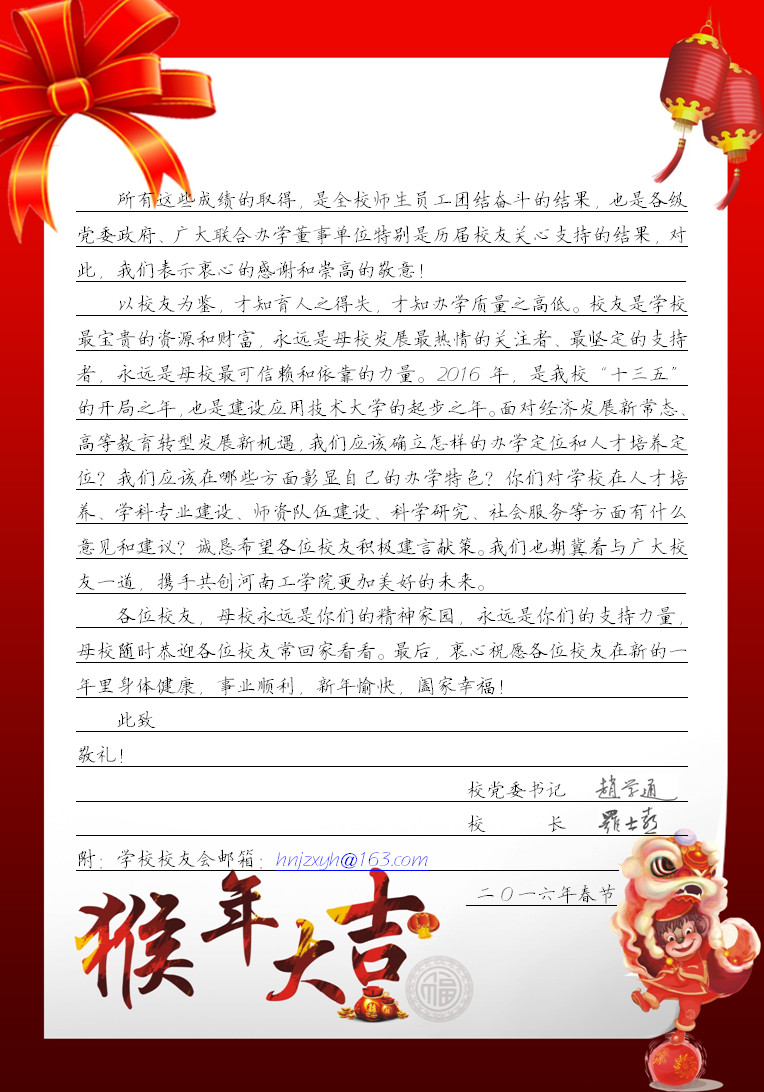 所有这些成绩的取得，是全校师生员工团结奋斗的结果，也是各级
党委政府、广大联合办学董事单位特别是历届校友关心支持的结果，对
此，我们表示衷心的感谢和崇高的敬意！
以校友为鉴，才知育人之得失，才知办学质量之高低。校友是学校
最宝贵的资源和财富，永远是母校发展最热情的关注者、最坚定的支持
者，永远是母校最可信赖和依靠的力量。2016 年，是我校“十三五”
的开局之年，也是建设应用技术大学的起步之年。面对经济发展新常态、
高等教育转型发展新机遇，我们应该确立怎样的办学定位和人才培养定
位？我们应该在哪些方面彰显自己的办学特色？你们对学校在人才培
养、学科专业建设、师资队伍建设、科学研究、社会服务等方面有什么
意见和建议？诚恳希望各位校友积极建言献策。我们也期冀着与广大校
友一道，携手共创河南工学院更加美好的未来。
各位校友，母校永远是你们的精神家园，永远是你们的支持力量，
母校随时恭迎各位校友常回家看看。最后，衷心祝愿各位校友在新的一
年里身体健康，事业顺利，新年愉快，阖家幸福！
此致
敬礼！
校党委书记 趙学通
校 长 羅士喜
附：学校校友会邮箱：hnjzxyh@163.com
二〇一六年春节
猴年大吉
福